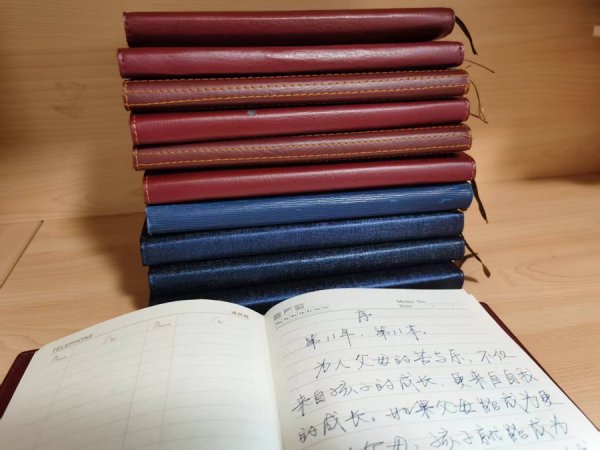 TELEPHONE
通讯录
Memo No.
Date
序
第11年,第11本。
为人父母的苦与乐,不但
来自孩子的成长,更来自自我
的成长。如果父母能成为更
父母,孩子就能成为